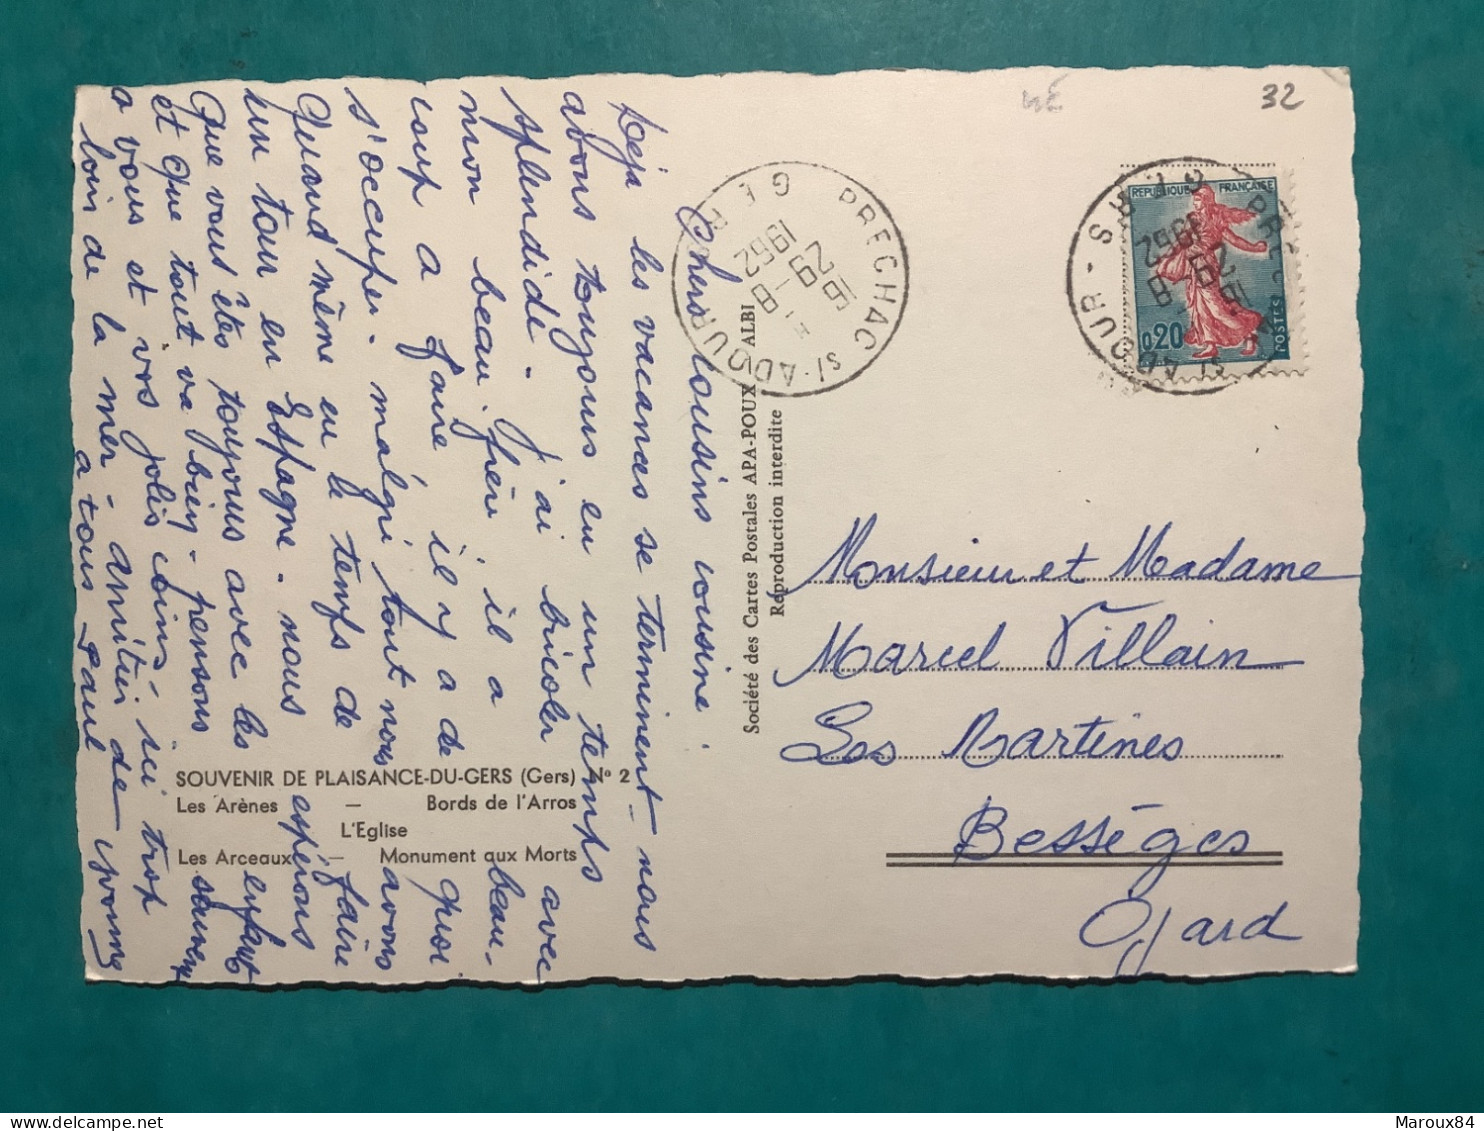 Chers Cousins cousine.
Déjà les vacances se terminent - nous
avons toujours eu un temps
splendide. J'ai bricoler avec
mon beau frère il a beau-
coup a faire il y a de quoi
s'occuper. malgré tout nous avons
Quand même eu le temps de faire
un tour en Espagne. nous espérons
Que vous êtes toujours avec les enfant
et que tout va bien - pensons souvent
a vous et vos jolis coins, ici trop
loin de la mer - amitiés de
a tous Paul Yvonne
SOUVENIR DE PLAISANCE-DU-GERS (Gers) N° 2
Les Arènes — Bords de l'Arros
L'Eglise
Les Arceaux — Monument aux Morts
Société des Cartes Postales APA-POUX ALBI
Reproduction interdite
PRECHAC S/ ADOUR GERS
16 H
29-8
1962
32
REPUBLIQUE FRANÇAISE
0,20
POSTES
PRECHAC S/ ADOUR - GERS
16 H
29-8
1962
Monsieur et Madame
Marcel Villain
Les Martines
Bessèges
Gard
Maroux84